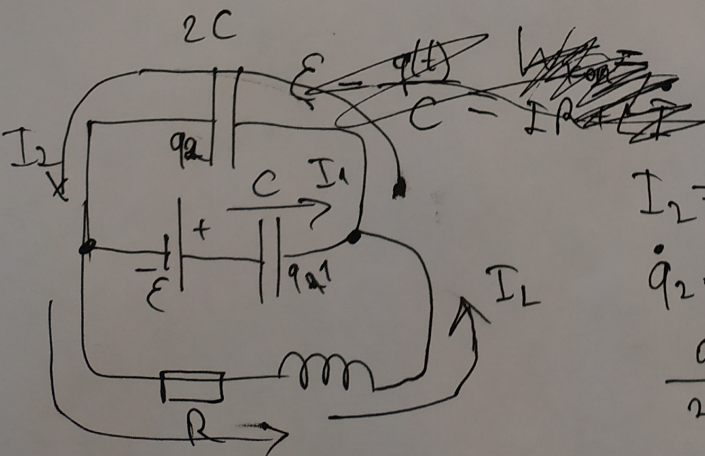 2C
ℰ - q(t)/C - IR
I₂
q₂
C
I₁
+
- ℰ
q₁
I_L
R
I₂ =
q̇₂
2